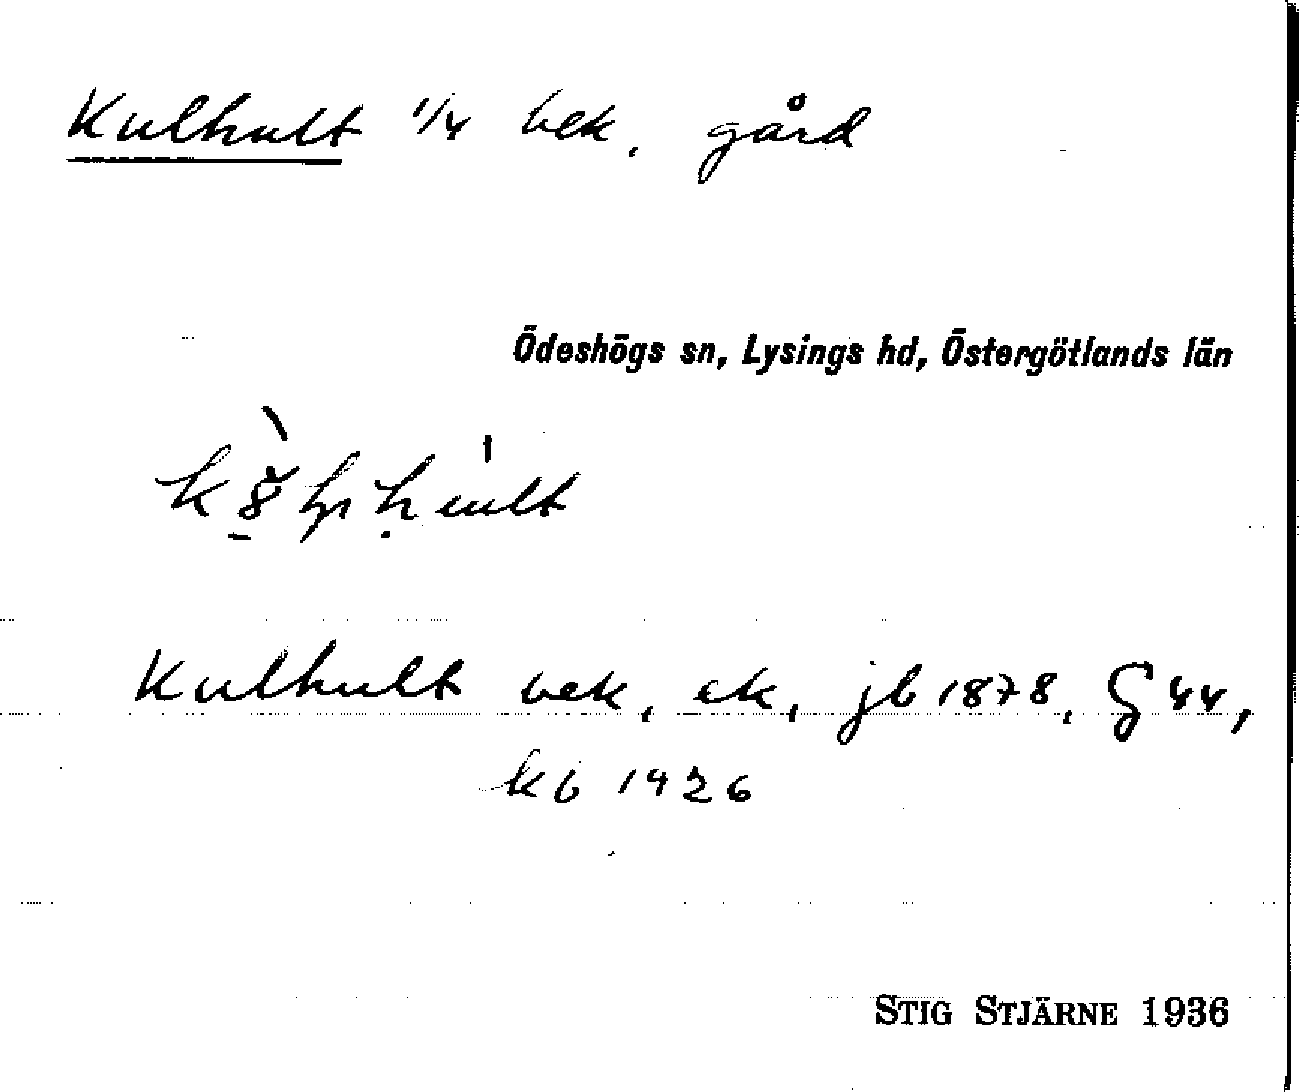 Kulhult 1/4 bek. gård
Ödeshögs sn, Lysings hd, Östergötlands län
Kulhult bek, ek, jb 1878, G 44,
kb 1926
STIG STJÄRNE 1936